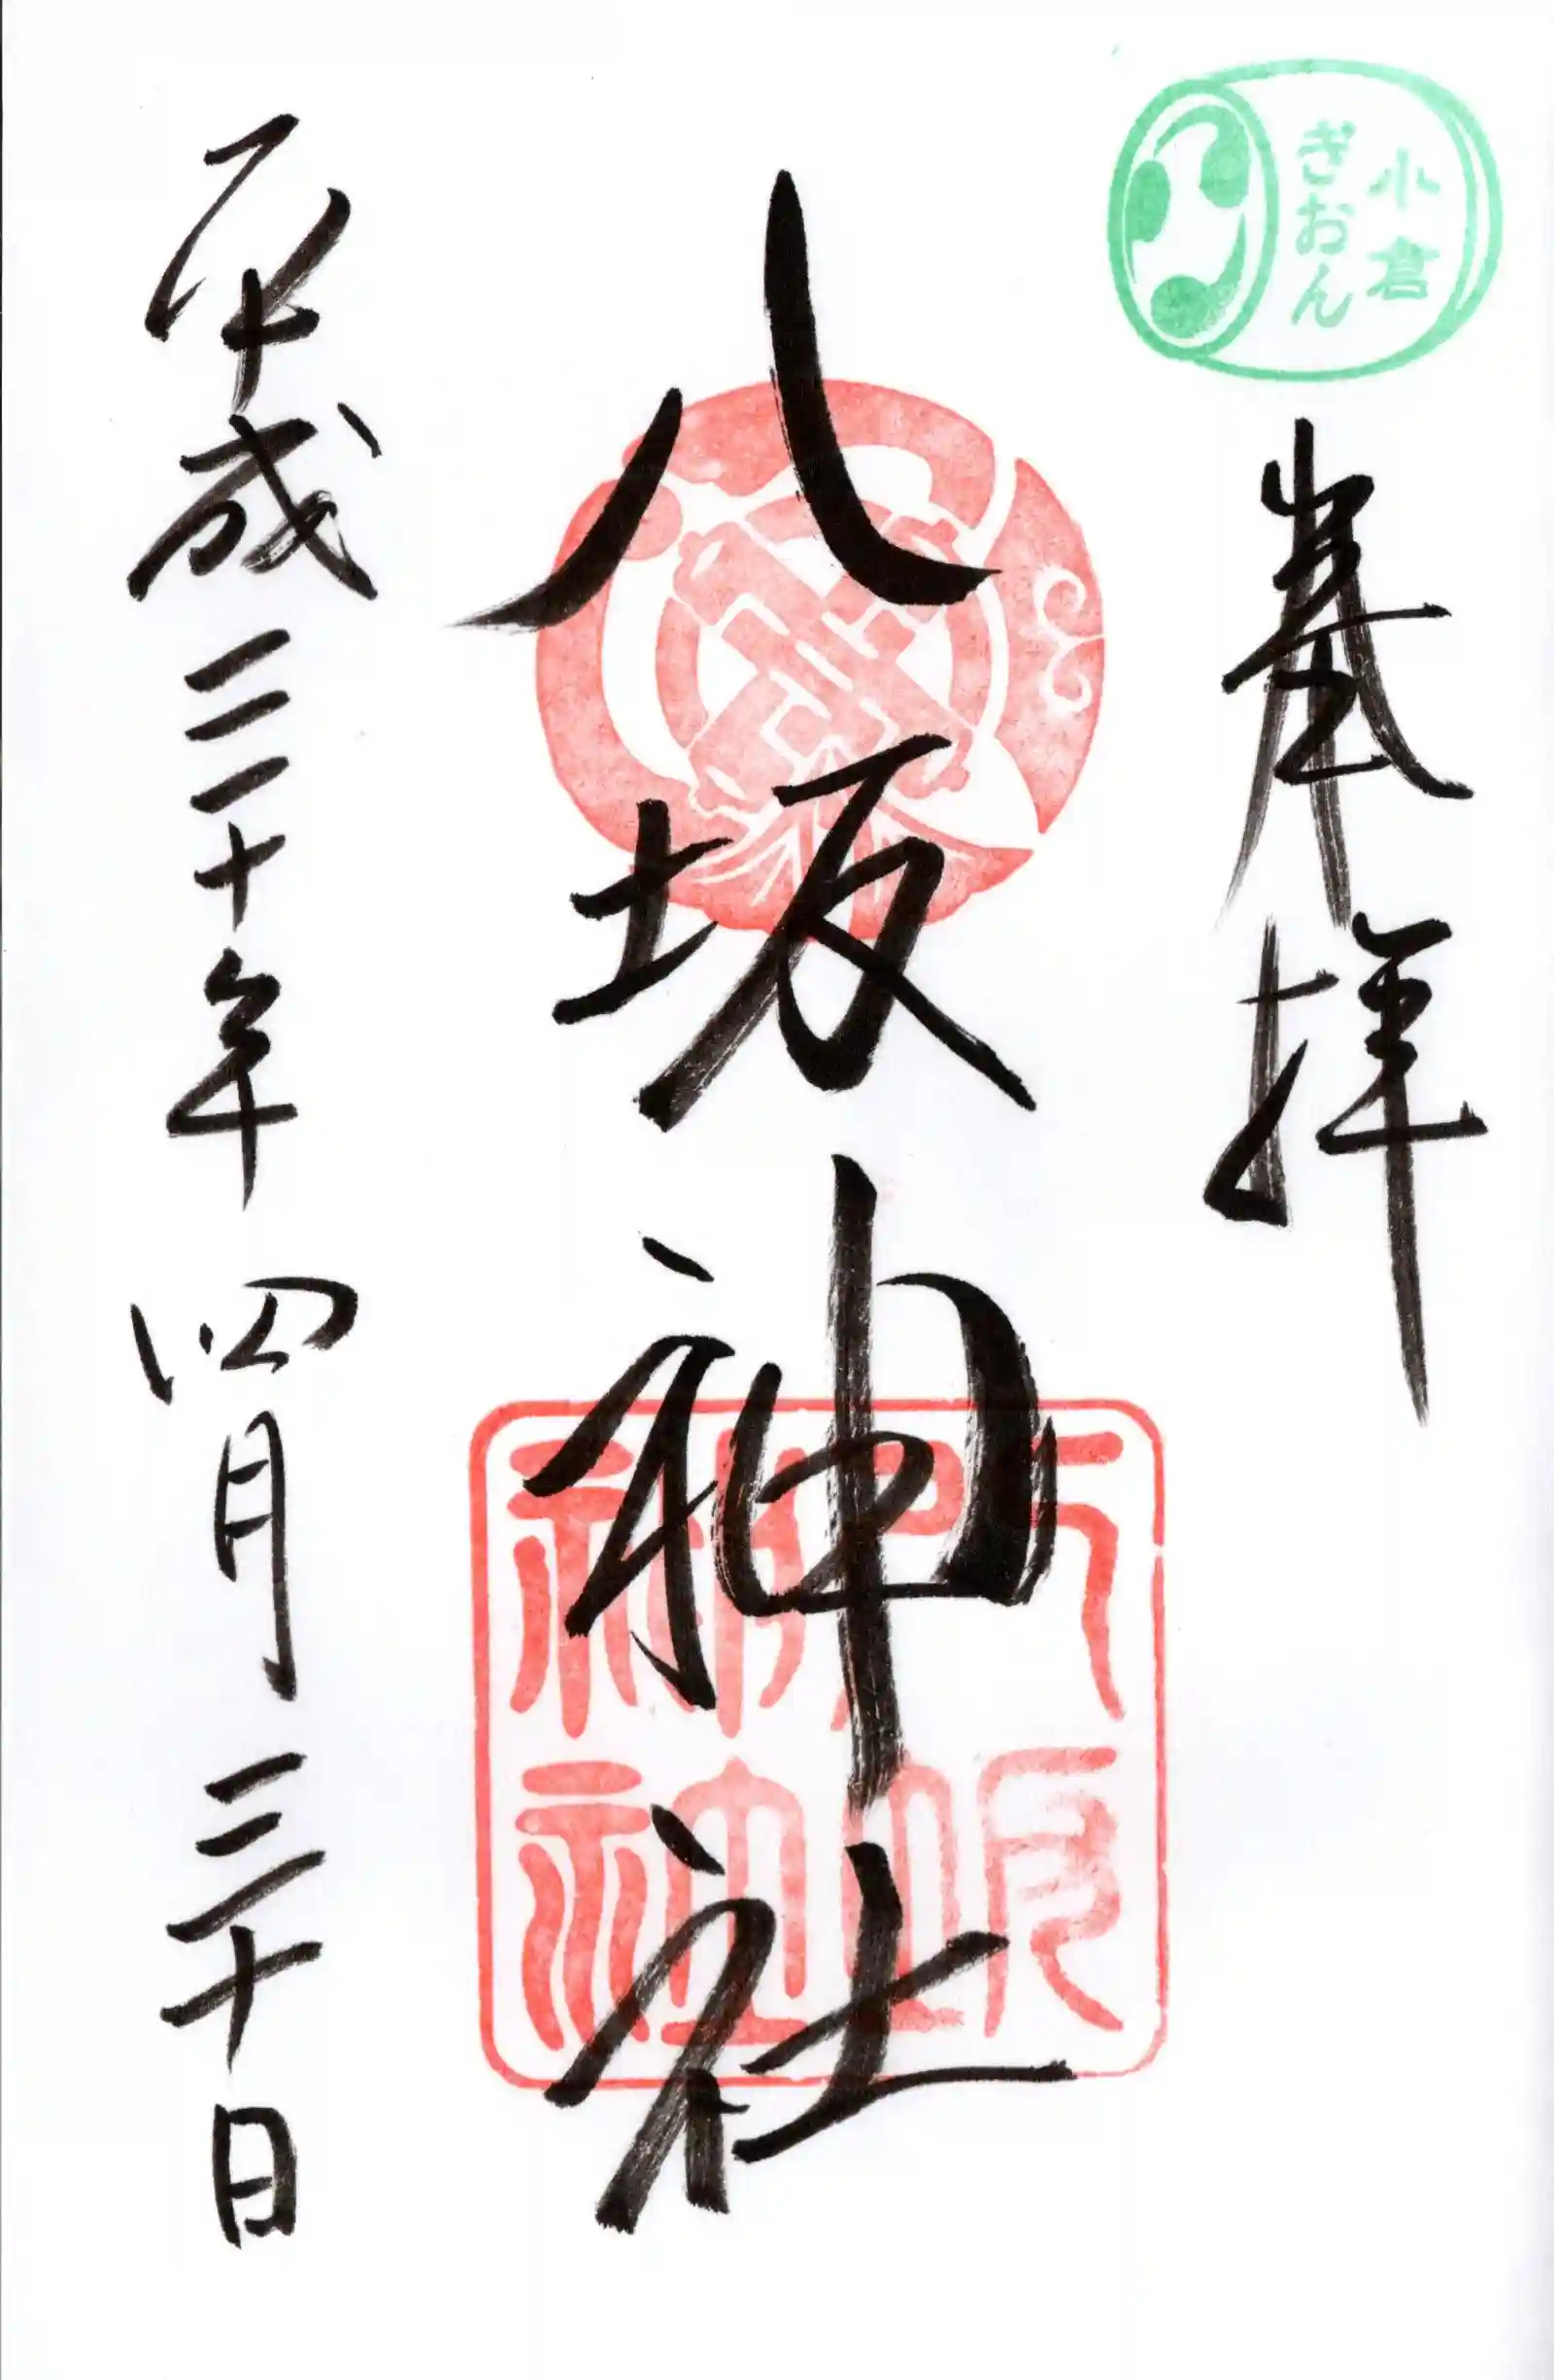 小倉
ぎおん
奉拝
八坂神社
平成三十年四月三十日